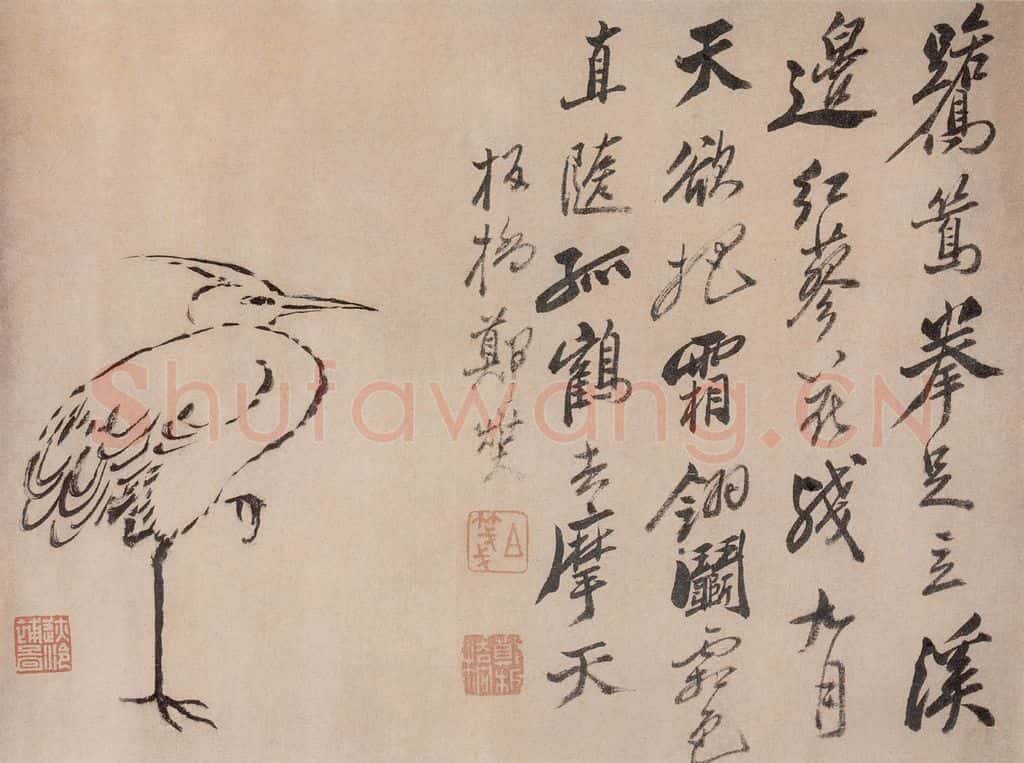 鷺鷥拳足立溪
邊紅蓼花殘九月
天欲把霜翎鬭霜色
直隨孤鶴去摩天
板橋鄭燮
Shufawang.CN